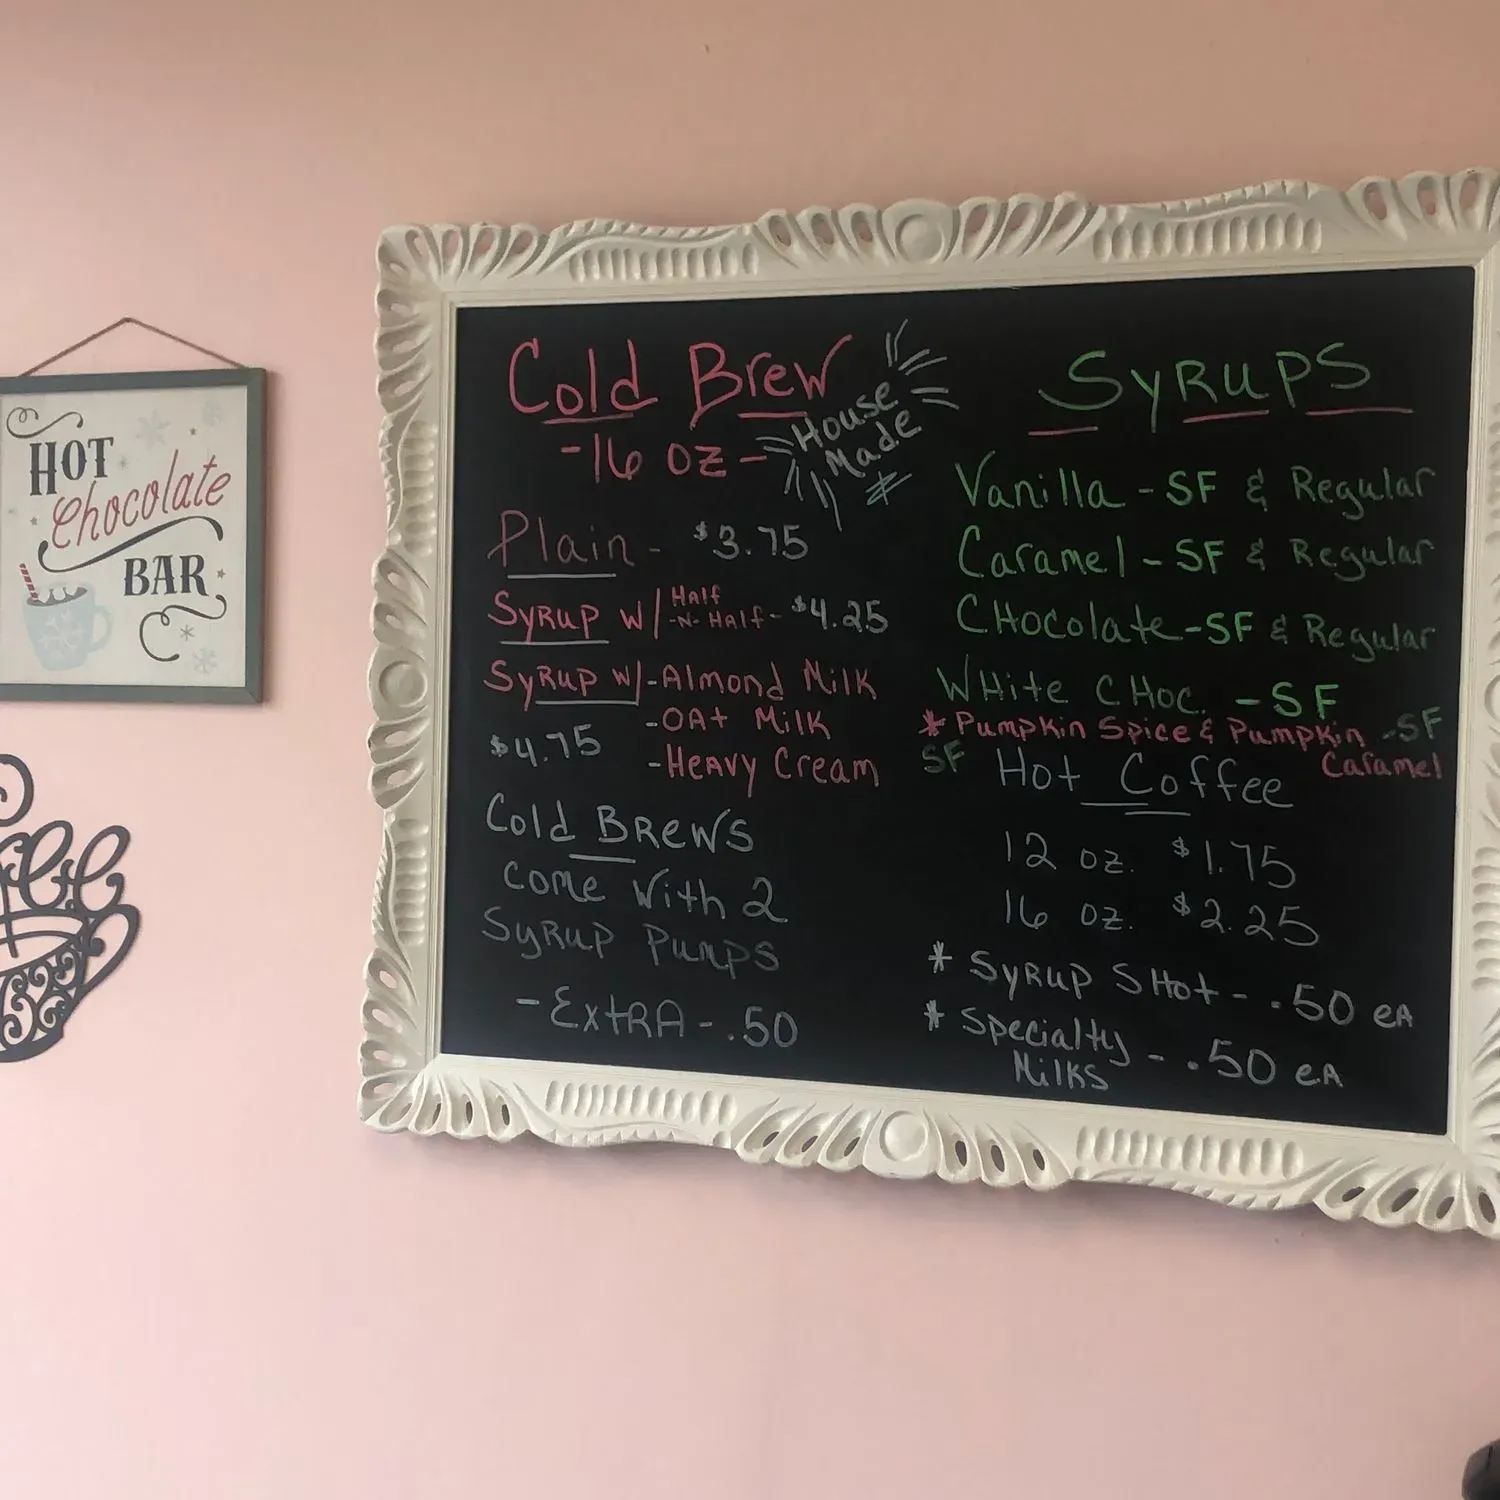 HOT
Chocolate
BAR
Cold Brew
House
Made
-16 oz-
Plain - $3.75
Syrup w/ Half
-N- Half - $4.25
Syrup w/ -Almond Milk
-Oat Milk
$4.75
-Heavy Cream
Cold Brews
come with 2
Syrup Pumps
- Extra - .50
Syrups
Vanilla - SF & Regular
Caramel - SF & Regular
Chocolate - SF & Regular
White Choc. - SF
* Pumpkin Spice & Pumpkin - SF
SF
Caramel
Hot Coffee
12 oz. $1.75
16 oz. $2.25
* Syrup Shot - .50 ea
* Specialty
Milks - .50 ea